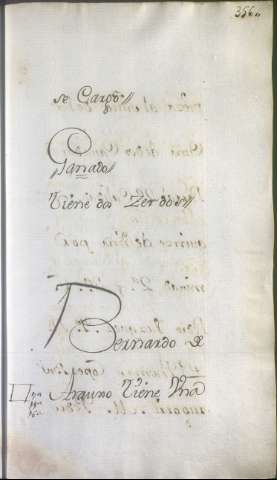 356
se Cargo
Ganado
tiene dos Zerdos
Bernardo de
Arauxo tiene Una